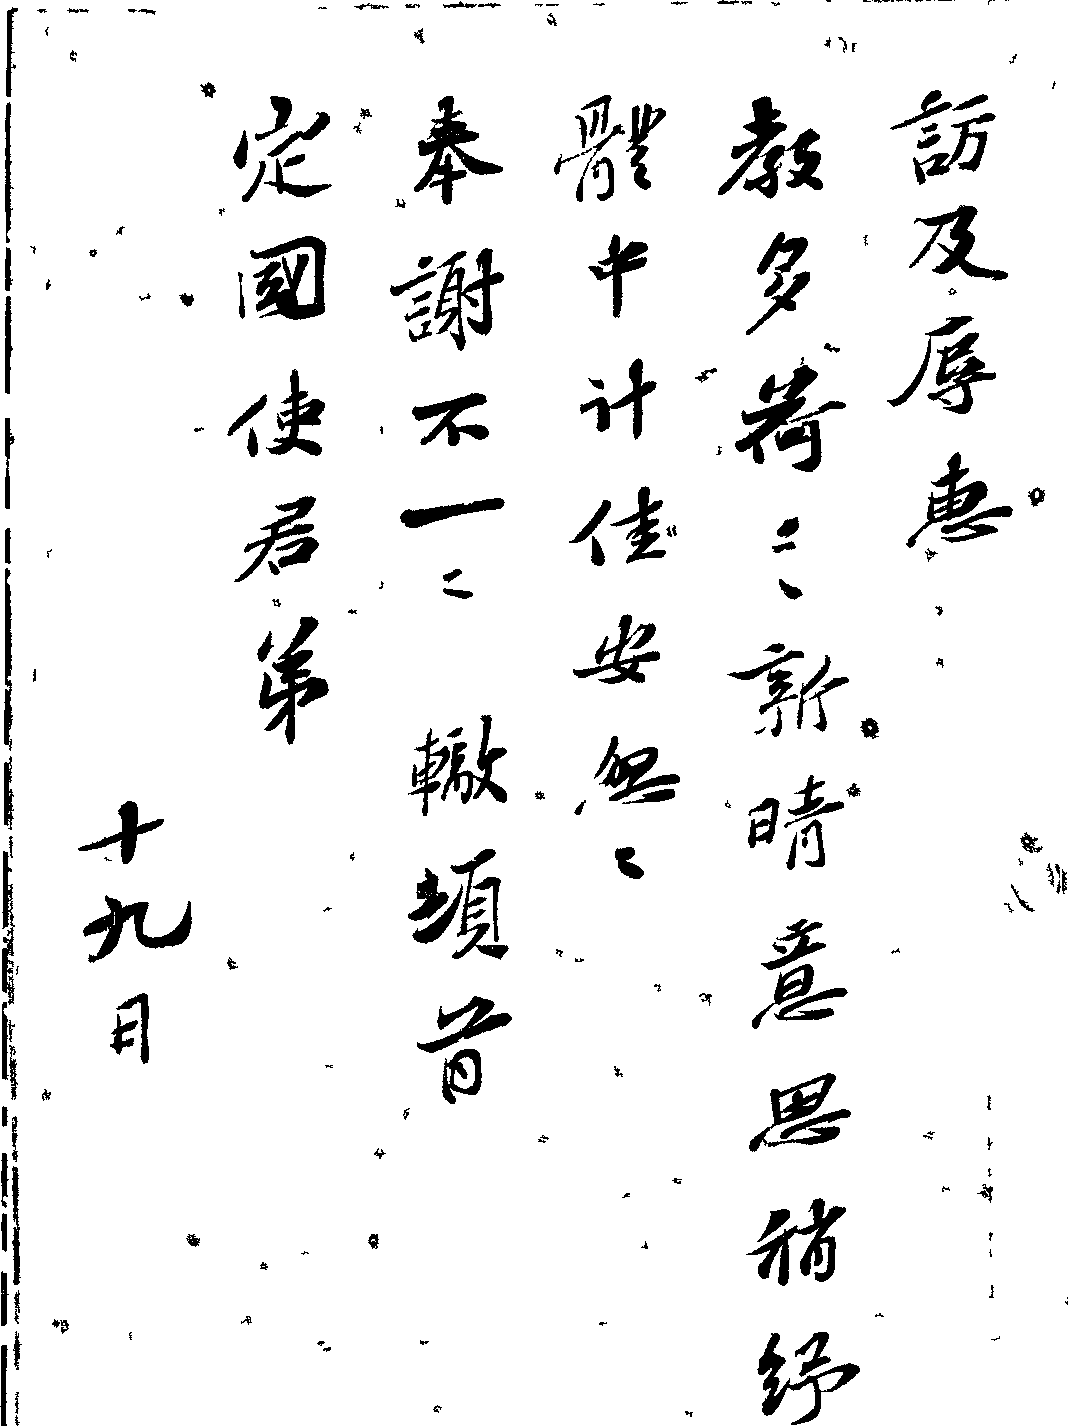 訪及辱惠
教多荷〻新晴意思稍紓
體中計佳安
奉謝不一〻 轍頓首
定國使君弟
十九日